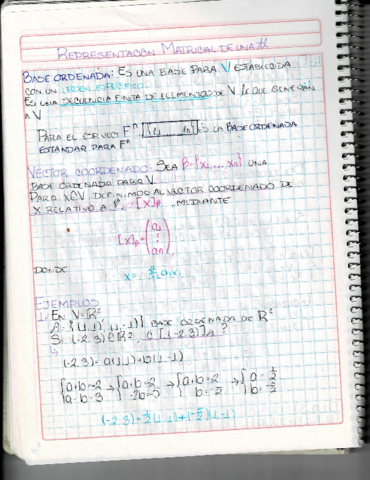 REPRESENTACIÓN MATRICIAL DE UNA tl
BASE ORDENADA: ES UNA BASE PARA V ESTABLECIDA
CON UN ORDEN ESPECÍFICO
ES UNA SECUENCIA FINITA DE ELEMENTOS DE V QUE GENERAN
A V
PARA EL ES LA BASE ORDENADA
ESTANDAR PARA Fⁿ
VECTOR COORDENADO: SEA β={x₁,...,xₙ} UNA
BASE ORDENADA PARA V.
PARA X∈V DEFINIMOS AL VECTOR COORDENADO DE
X RELATIVO A β, [x]β MEDIANTE
[x]β = (a₁ ⋮ aₙ)
DONDE
EJEMPLOS
1.- EN V=R²
β={(1,1),(1,-1)} BASE ORDENADA DE R²
SI (-2,3)∈R², ¿[(-2,3)]β?
(-2,3)=a(1,1)+b(1,-1)
{a+b=-2 → {a+b=-2 → {a+b=-2 → {a=1/2
{a-b=3 {-2b=5 {b=-5/2 {b=-5/2
(-2,3)=1/2(1,1)+(-5/2)(1,-1)